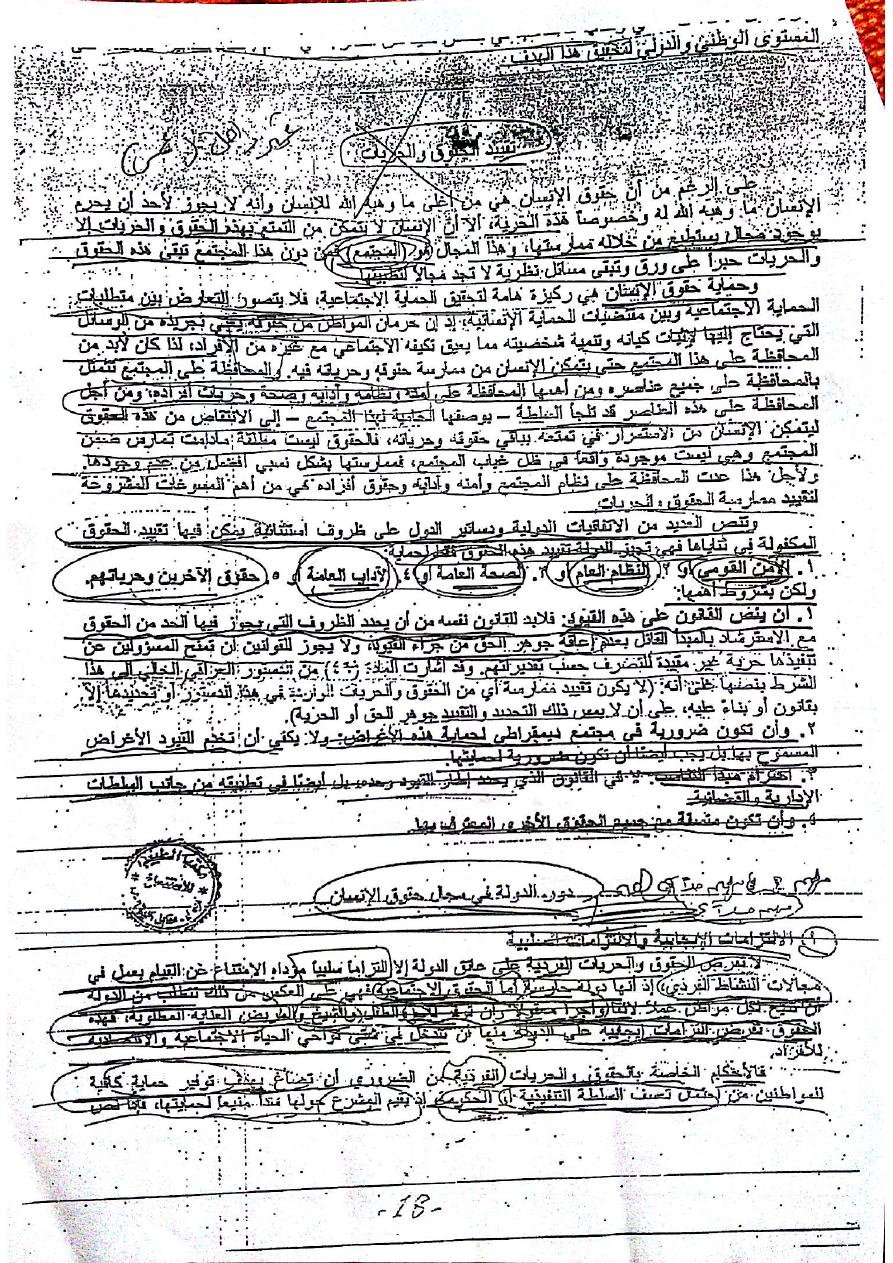 المستوى الوطني والدولي لتحقيق هذا الهدف.
تقييد الحقوق والحريات
على الرغم من أن حقوق الإنسان هي من أغلى ما وهبه الله للإنسان وأنه لا يجوز لأحد أن يحرم
الإنسان ما وهبه الله له وخصوصاً هذه الحرية، ألا أن الإنسان لا يتمكن من التمتع بهذه الحقوق والحريات إلا
بوجود مجال يستطيع من خلاله ممارستها، وهذا المجال هو (المجتمع) فمن دون هذا المجتمع تبقى هذه الحقوق
والحريات حبراً على ورق وتبقى مسائل نظرية لا تجد مجالاً لتطبيقها.
وحماية حقوق الإنسان هي ركيزة هامة لتحقيق الحماية الاجتماعية، فلا يتصور التعارض بين متطلبات
الحماية الاجتماعية وبين مقتضيات الحماية الإنسانية، إذ إن حرمان المواطن من حقوقه يعني تجريده من الوسائل
التي يحتاج إليها لإثبات كيانه وتنمية شخصيته مما يعيق تكيفه الاجتماعي مع غيره من الأفراد، لذا كان لابد من
المحافظة على هذا المجتمع حتى يتمكن الإنسان من ممارسة حقوقه وحرياته فيه. والمحافظة على المجتمع تتمثل
بالمحافظة على جميع عناصره ومن أهمها المحافظة على أمنه ونظامه وآدابه وصحة وحريات أفراده، ومن أجل
المحافظة على هذه العناصر قد تلجأ السلطة - بوصفها الحامية لهذا المجتمع - إلى الانتقاص من هذه الحقوق
ليتمكن الإنسان من الاستمرار في تمتعه بباقي حقوقه وحرياته، فالحقوق ليست مطلقة مادامت تمارس ضمن
المجتمع وهي ليست موجودة واقعاً في ظل غياب المجتمع، فممارستها بشكل نسبي أفضل من عدم وجودها.
ولأجل هذا عدت المحافظة على نظام المجتمع وأمنه وآدابه وحقوق أفراده هي من أهم المسوغات المشروحة
لتقييد ممارسة الحقوق والحريات.
وتنص العديد من الاتفاقيات الدولية ودساتير الدول على ظروف استثنائية يمكن فيها تقييد الحقوق
المكفولة في ثناياها فهي تجيز للدولة تقييد هذه الحقوق فقط لحماية:
١. الأمن القومي أو ٢. النظام العام أو ٣. الصحة العامة أو ٤. الآداب العامة أو ٥. حقوق الآخرين وحرياتهم.
ولكن بشروط أهمها:
١. أن ينص القانون على هذه القيود: فلابد للقانون نفسه من أن يحدد الظروف التي يجوز فيها الحد من الحقوق
مع الاسترشاد بالمبدأ القائل بعدم إعاقة جوهر الحق من جراء القيود، ولا يجوز للقوانين أن تمنح المسؤولين عن
تنفيذها حرية غير مقيدة للتصرف حسب تقديراتهم. وقد أشارت المادة من الدستور العراقي الحالي إلى هذا
الشرط بنصها على أنه: (لا يكون تقييد ممارسة أي من الحقوق والحريات الواردة في هذا الدستور أو تحديدها إلا
بقانون أو بناءً عليه، على أن لا يمس ذلك التحديد والتقييد جوهر الحق أو الحرية).
٢. وأن تكون ضرورية في مجتمع ديمقراطي لحماية هذه الأغراض: ولا يكفي أن تخدم القيود الأغراض
المسموح بها بل يجب أيضاً أن تكون ضرورية لحمايتها.
٣. احترام مبدأ التناسب: لا في القانون الذي يحدد إطار القيود وحده، بل أيضاً في تطبيقه من جانب السلطات
الإدارية والقضائية
٤. وأن تكون متسقة مع جميع الحقوق الأخرى المعترف بها.
دور الدولة في مجال حقوق الإنسان
١. الالتزامات الإيجابية والالتزامات السلبية
لا تفرض الحقوق والحريات الفردية على عاتق الدولة إلا التزاماً سلبياً مؤداه الامتناع عن القيام بعمل في
مجالات النشاط الفردي، إذ أنها دولة حارسة، أما الحقوق الاجتماعية فهي على العكس من ذلك تتطلب من الدولة
أن تتيح لكل مواطن عملاً لائقاً وأجراً معقولاً وأن توفر للطفل والشيخ والمريض العناية المطلوبة، فهذه
الحقوق تفرض التزامات إيجابية على الدولة منها أن تتدخل في شتى نواحي الحياة الاجتماعية والاقتصادية
للأفراد.
فالأحكام الخاصة بالحقوق والحريات الفردية من الضروري أن تصاغ بهدف توفير حماية كافية
للمواطنين من احتمال تعسف السلطة التنفيذية أو الحكومة، إذ يقيم المشرع حولها سداً منيعاً لحمايتها، فإذا نص
-18-